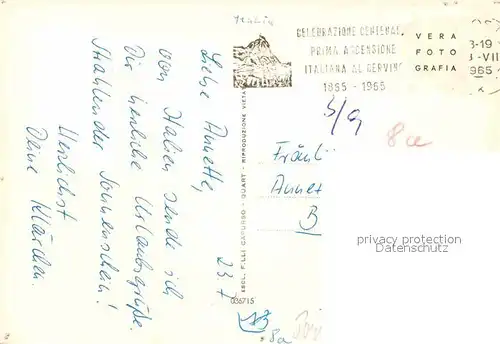 Italia
CELEBRAZIONE CENTENAR.
PRIMA ASCENSIONE
ITALIANA AL CERVINO
1865 - 1965
VERA
FOTO
GRAFIA
3-19
-VII
1965
23.7
Liebe Annette,
von Italien sende ich
Dir herzliche Urlaubsgrüße.
Strahlender Sonnenschein!
Herzlichst
Deine Klärchen.
ESCL. F.LLI CAPURSO - QUART - RIPRODUZIONE VIETATA
036715
Fräul
Annet
B
8a
8a
privacy protection
Datenschutz